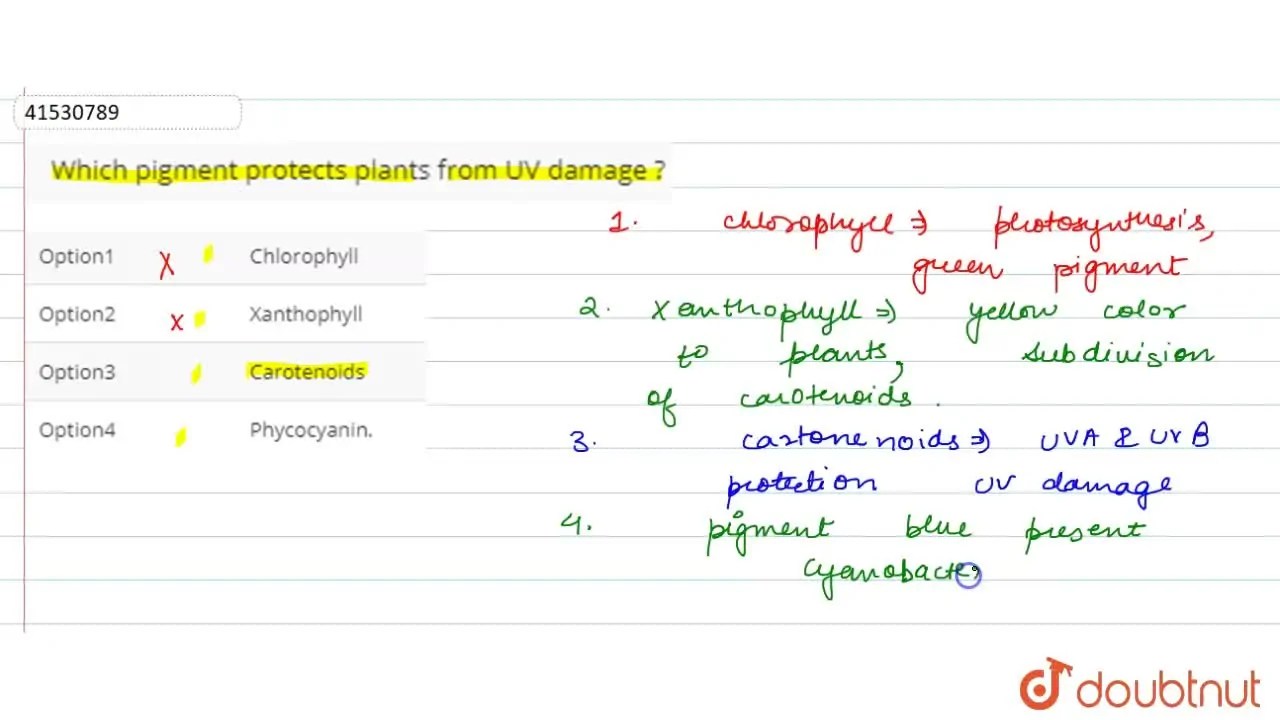 41530789
Which pigment protects plants from UV damage ?
Option1 X Chlorophyll
Option2 x Xanthophyll
Option3 Carotenoids
Option4 Phycocyanin.
1. chlorophyll ⇒ photosynthesis,
green pigment
2. Xanthophyll ⇒ yellow color
to plants, subdivision
of carotenoids.
3. cartonenoids ⇒ UVA & UVB
protection UV damage
4. pigment blue present
cyanobacte
doubtnut